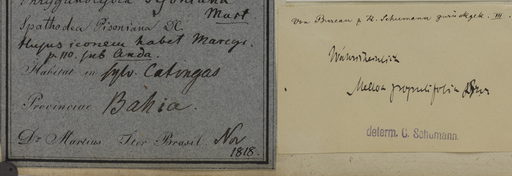 Mart
Spathodea Pisoniana DC.
Hujus iconem habet Marcgr.
p. 110. sub Anda.
Habitat in sylv. Catingas
Provinciae Bahia.
Dr. Martius Iter Brasil. Nov
1818.
Von Bureau & K. Schumann zurückgek. III.
Wahrscheinlich
Melloa populifolia Bur
determ. C. Schumann.